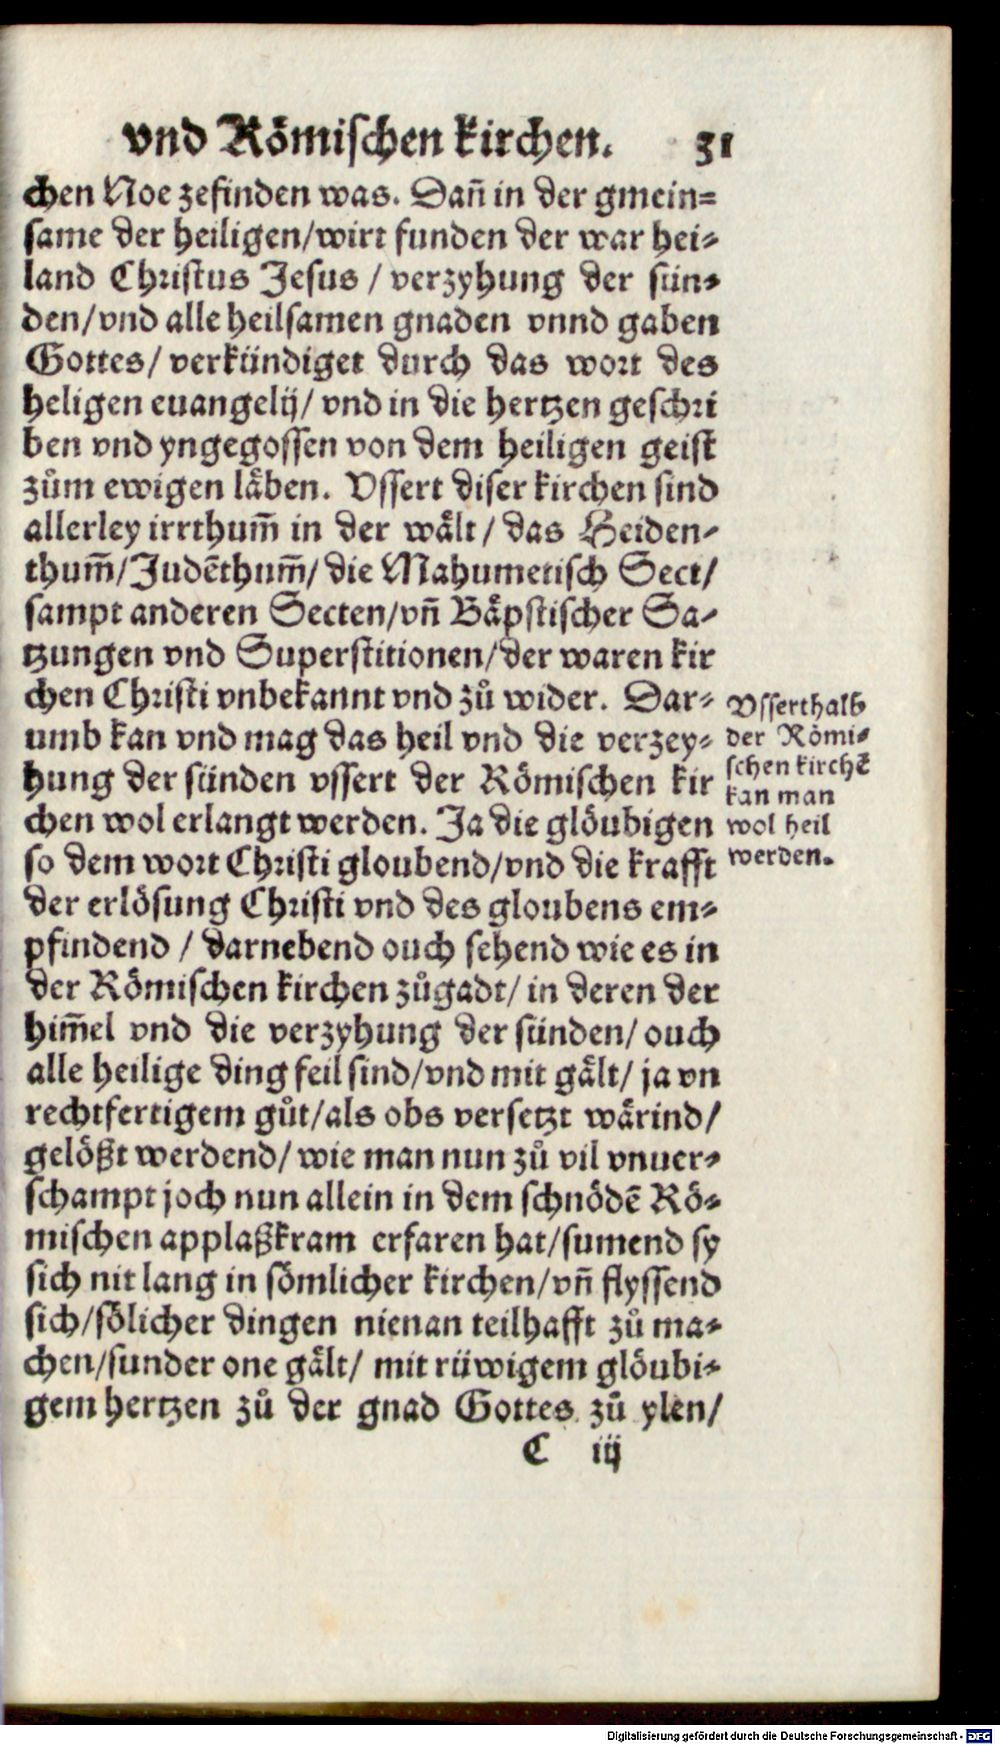 vnd Römischen kirchen. 31
chen Noe zefinden was. Dañ in der gmein=
same der heiligen/wirt funden der war hei=
land Christus Jesus / verzyhung der sün=
den/vnd alle heilsamen gnaden vnnd gaben
Gottes/ verkündiget durch das wort des
heligen euangelij/ vnd in die hertzen geschri
ben vnd yngegossen von dem heiligen geist
zům ewigen läben. Vssert diser kirchen sind
allerley irrthum̃ in der wält/ das Heiden=
thum̃/Judẽthum̃/ die Mahumetisch Sect/
sampt anderen Secten/vñ Bäpstischer Sa=
tzungen vnd Superstitionen/der waren kir
chen Christi vnbekannt vnd zů wider. Dar=
umb kan vnd mag das heil vnd die verzey=
hung der sünden vssert der Römischen kir
chen wol erlangt werden. Ja die glöubigen
so dem wort Christi gloubend/vnd die krafft
der erlösung Christi vnd des gloubens em=
pfindend / darnebend ouch sehend wie es in
der Römischen kirchen zůgadt/ in deren der
him̃el vnd die verzyhung der sünden/ ouch
alle heilige ding feil sind/vnd mit gält/ ja vn
rechtfertigem gůt/als obs versetzt wärind/
gelößt werdend/ wie man nun zů vil vnuer=
schampt joch nun allein in dem schnödẽ Rö=
mischen applaßkram erfaren hat/sumend sy
sich nit lang in sömlicher kirchen/vñ flyssend
sich/sölicher dingen nienan teilhafft zů ma=
chen/sunder one gält/ mit rüwigem glöubi=
gem hertzen zů der gnad Gottes zů ylen/
C iij
Vsserthalb
der Römi=
schen kirchẽ
kan man
wol heil
werden.
Digitalisierung gefördert durch die Deutsche Forschungsgemeinschaft - DFG